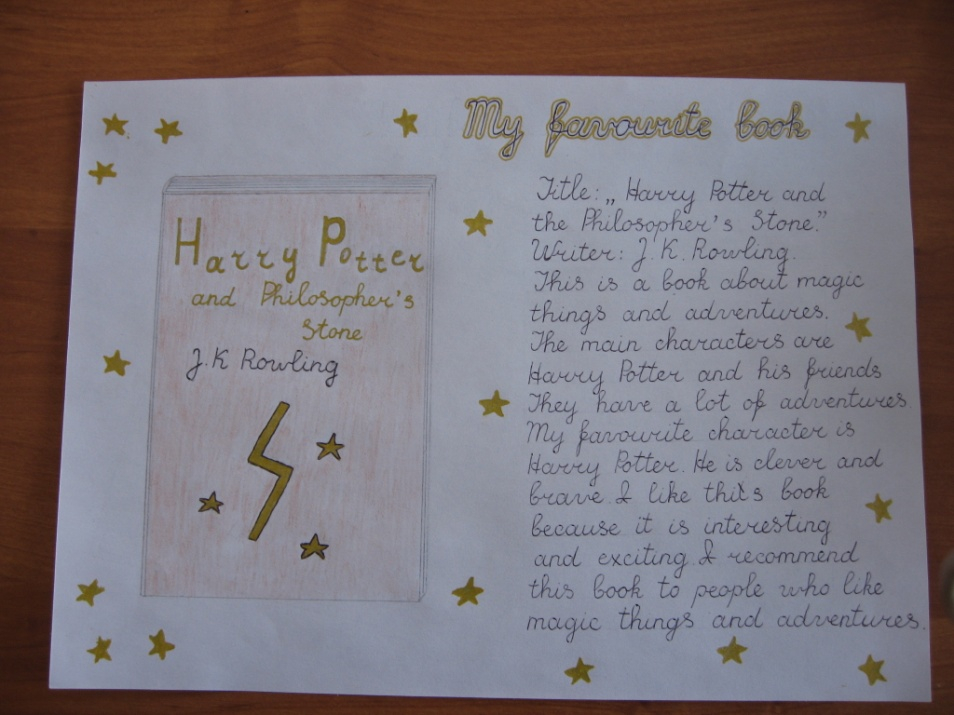 My favourite book
Harry Potter
and Philosopher's
Stone
J.K Rowling
Title: „Harry Potter and
the Philosopher's Stone."
Writer: J. K. Rowling.
This is a book about magic
things and adventures.
The main characters are
Harry Potter and his friends
They have a lot of adventures.
My favourite character is
Harry Potter. He is clever and
brave. I like this book
because it is interesting
and exciting. I recommend
this book to people who like
magic things and adventures.